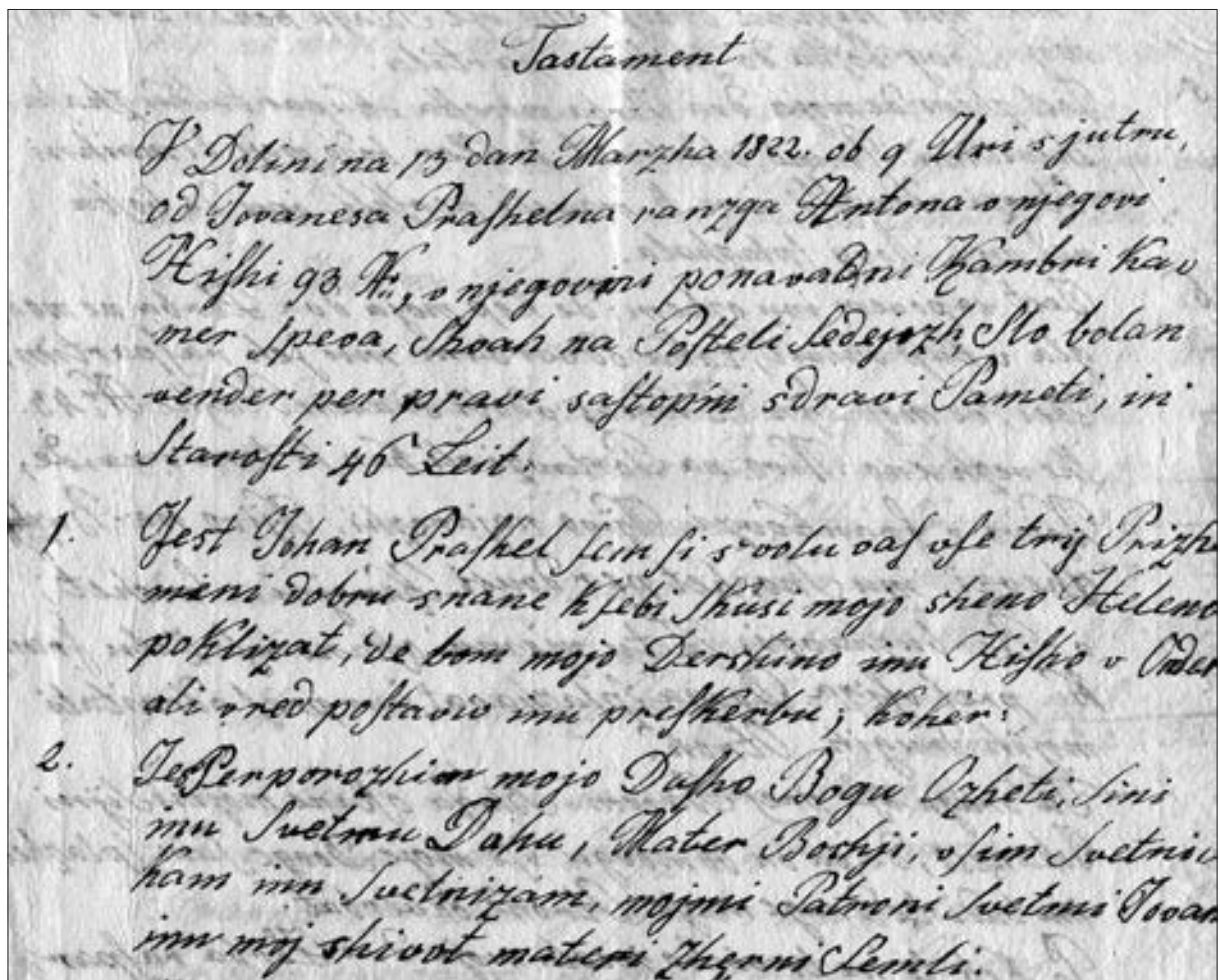 Tastament
V Dolini na 13 dan Marzha 1822. ob 9 Uri sjutru,
od Jovanesa Praſhelna ranzga Antona v njegovi
Hiſhi 93 N:, v njegovini ponavadni Kambri Kav
mer ſpeva, na Poſteli Sto bolan
vender per pravi saſtopni sdravi Pameti, in
Staroſti 46 Leit.
1. Jeſt Johan Praſhel ſem ſi s volu vaſ vſe trij Prizh
meni dobru snane kſebi ſkusi mojo sheno Heleno
poklizat, de bom mojo Dershino inu Hiſho v Order
ali vred poſtaviv inu preſkerbu; koher:
2. Jeſt Perporozhim mojo Duſho Bogu Ozheti, Sini
inu Svetmu Duhu, Mater Boshji, vſim Svetni
kam inu Svetnizam, mojmi Patroni Svetmi Jovan
inu moj shivot materi zherni Semli.